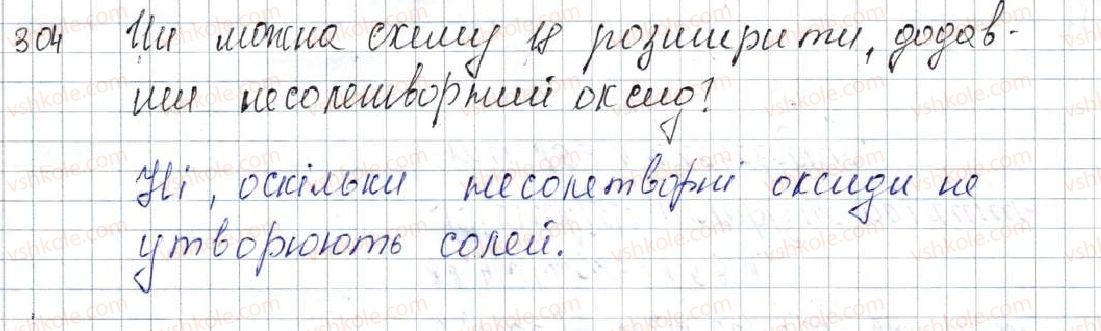 304 Чи можна схему 18 розширити, додав-
ши несолетворний оксид?
Ні, оскільки несолетворні оксиди не
утворюють солей.